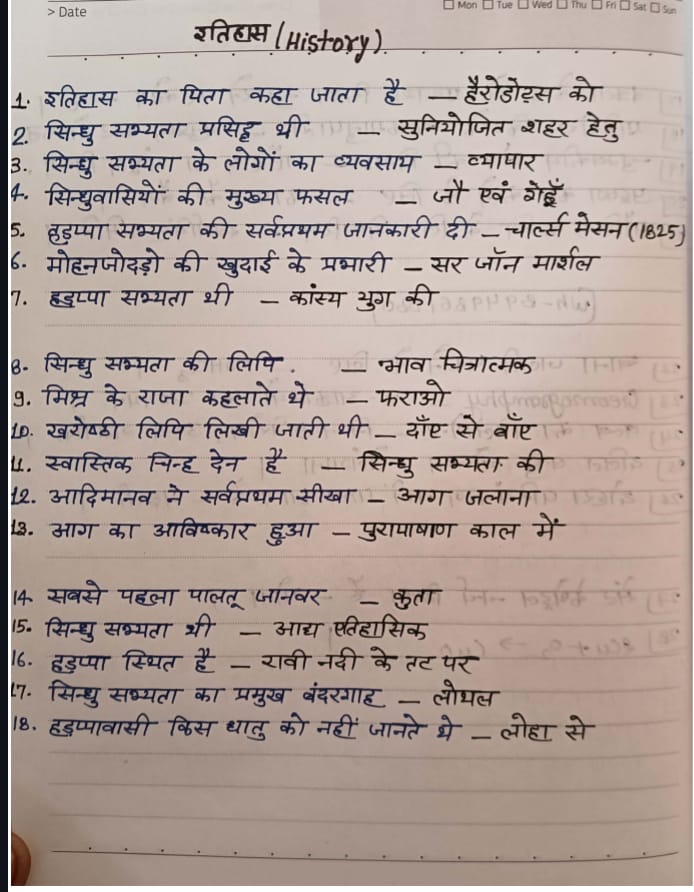 > Date
☐ Mon ☐ Tue ☐ Wed ☐ Thu ☐ Fri ☐ Sat ☐ Sun
इतिहास (History)
1. इतिहास का पिता कहा जाता है — हैरोडोट्स को
2. सिन्धु सभ्यता प्रसिद्द थी — सुनियोजित शहर हेतु
3. सिन्धु सभ्यता के लोगों का व्यवसाय — व्यापार
4. सिन्धुवासियों की मुख्य फसल — जौ एवं गेहूँ
5. हड़प्पा सभ्यता की सर्वप्रथम जानकारी दी – चार्ल्स मेसन (1825)
6. मोहनजोदड़ो की खुदाई के प्रभारी – सर जॉन मार्शल
7. हड़प्पा सभ्यता थी – कांस्य युग की
8. सिन्धु सभ्यता की लिपि. — भाव चित्रात्मक
9. मिस्र के राजा कहलाते थे — फराओ
10. खरोष्ठी लिपि लिखी जाती थी – दाँए से बाँए
11. स्वास्तिक चिन्ह देन है — सिन्धु सभ्यता की
12. आदिमानव ने सर्वप्रथम सीखा – आग जलाना
13. आग का आविष्कार हुआ – पुरापाषाण काल में
14. सबसे पहला पालतू जानवर – कुता
15. सिन्धु सभ्यता थी – आद्य ऐतिहासिक
16. हड़प्पा स्थित है – रावी नदी के तट पर
17. सिन्धु सभ्यता का प्रमुख बंदरगाह – लोथल
18. हड़प्पावासी किस धातु को नहीं जानते थे – लोहा से